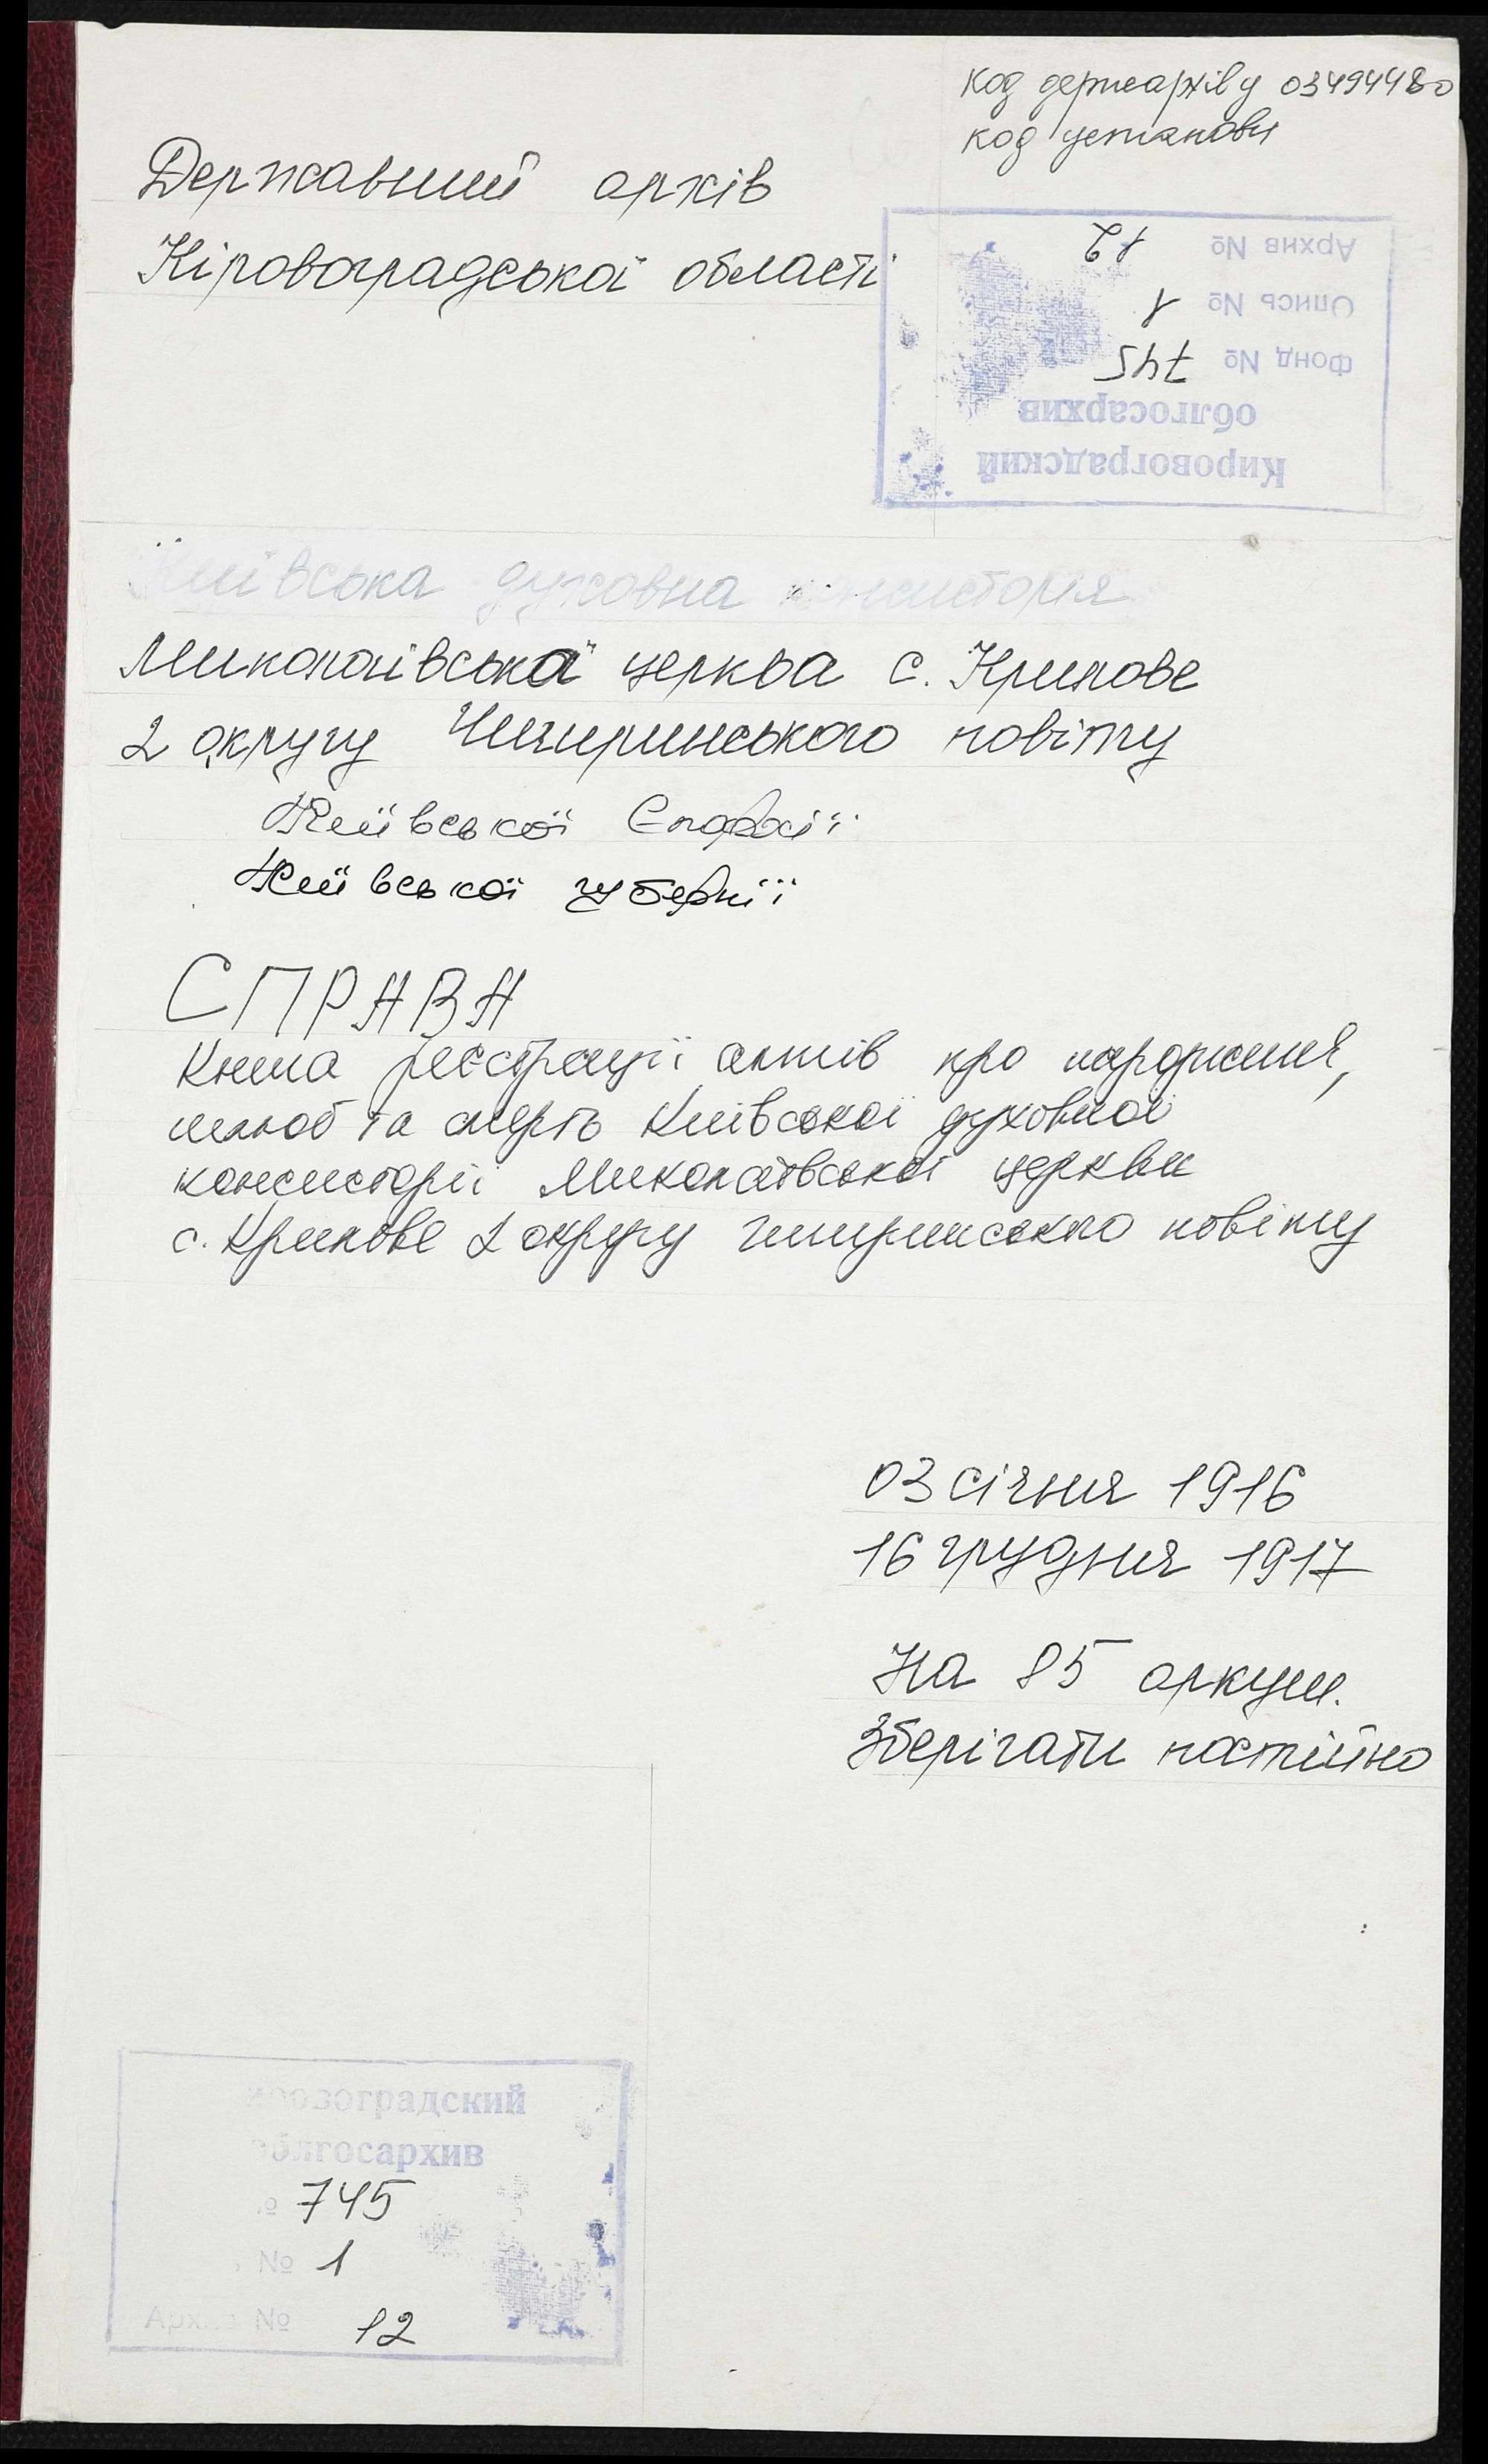 код держархіву 03494480
код установи
Державний архів
Кіровоградської області
Архив № 12
Опись № 1
Фонд № 745
облгосархив
Кировоградский
Київська духовна консисторія
Миколаївська церква с. Крилове
2 округу Чигиринського повіту
Київської Єпархії
Київської губернії
СПРАВА
Книга реєстрації актів про народження,
шлюб та смерть Київської духовної
консисторії Миколаївської церкви
с. Крилове 2 округу Чигиринського повіту
03 січня 1916
16 грудня 1917
На 85 аркуш.
Зберігати постійно
Кировоградский
облгосархив
№ 745
№ 1
Архив № 12